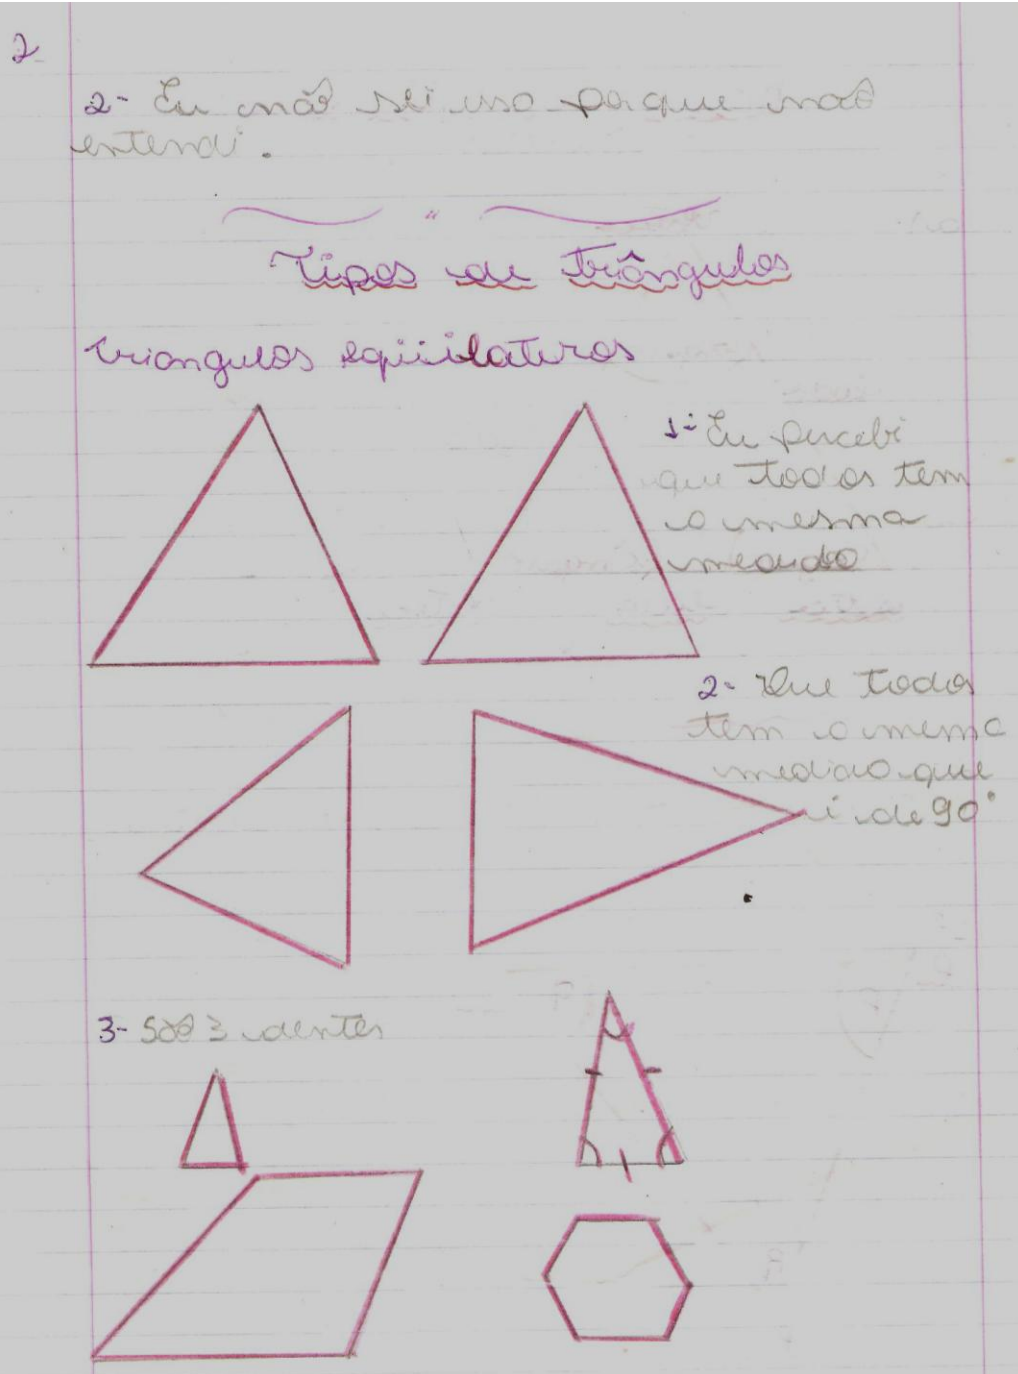 2
2- Eu não sei uso porque não
entendi.
"
Tipos de triângulos
triangulos eqüilateros
1- Eu percebi
que todos tem
a mesma
medida
2- Que todos
tem a mema
medida que
é de 90°
3- São 3 dentes